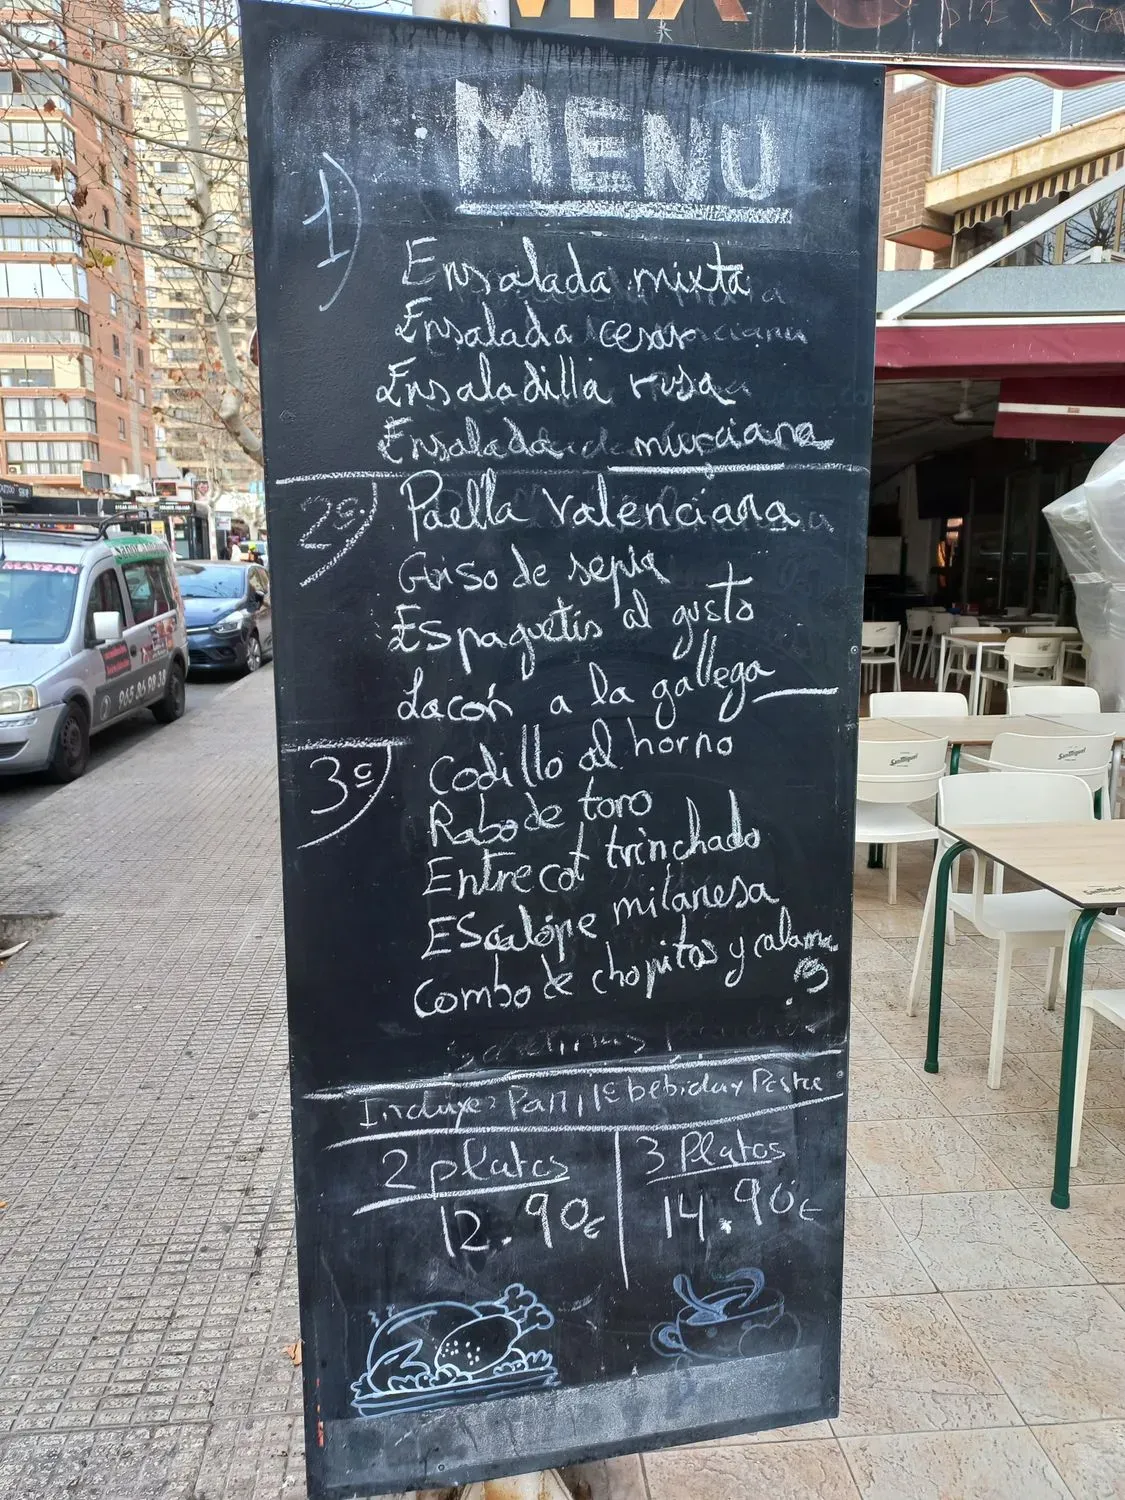 MENU
1)
Ensalada mixta
Ensalada cesar
Ensaladilla rusa
Ensalada murciana
2º)
Paella valenciana
Guiso de sepia
Espaguetis al gusto
Lacón a la gallega
3º)
Codillo al horno
Rabo de toro
Entrecot trinchado
EScalope milanesa
Combo de chopitos y calama
res
Incluye: Pan, 1ª bebida y Postre
2 platos
12.90€
3 Platos
14.90€
MAYSAN
965 86 98 38
SanMiguel
SanMiguel